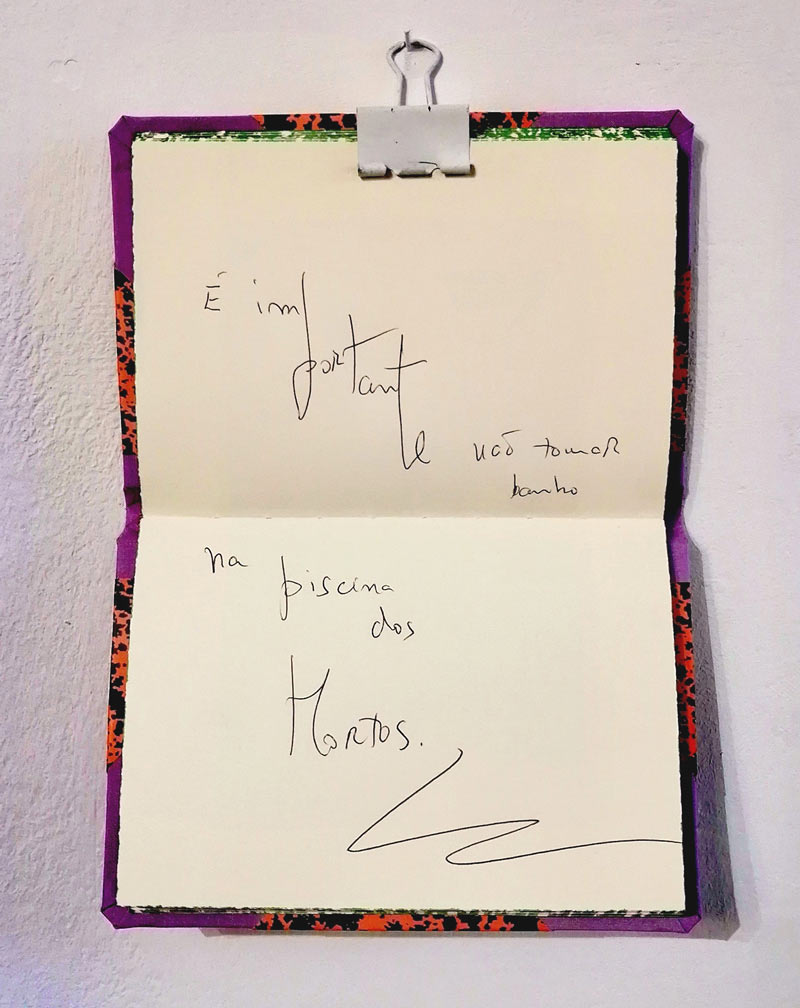 É importante não tomar
banho
na piscina
dos
Mortos.